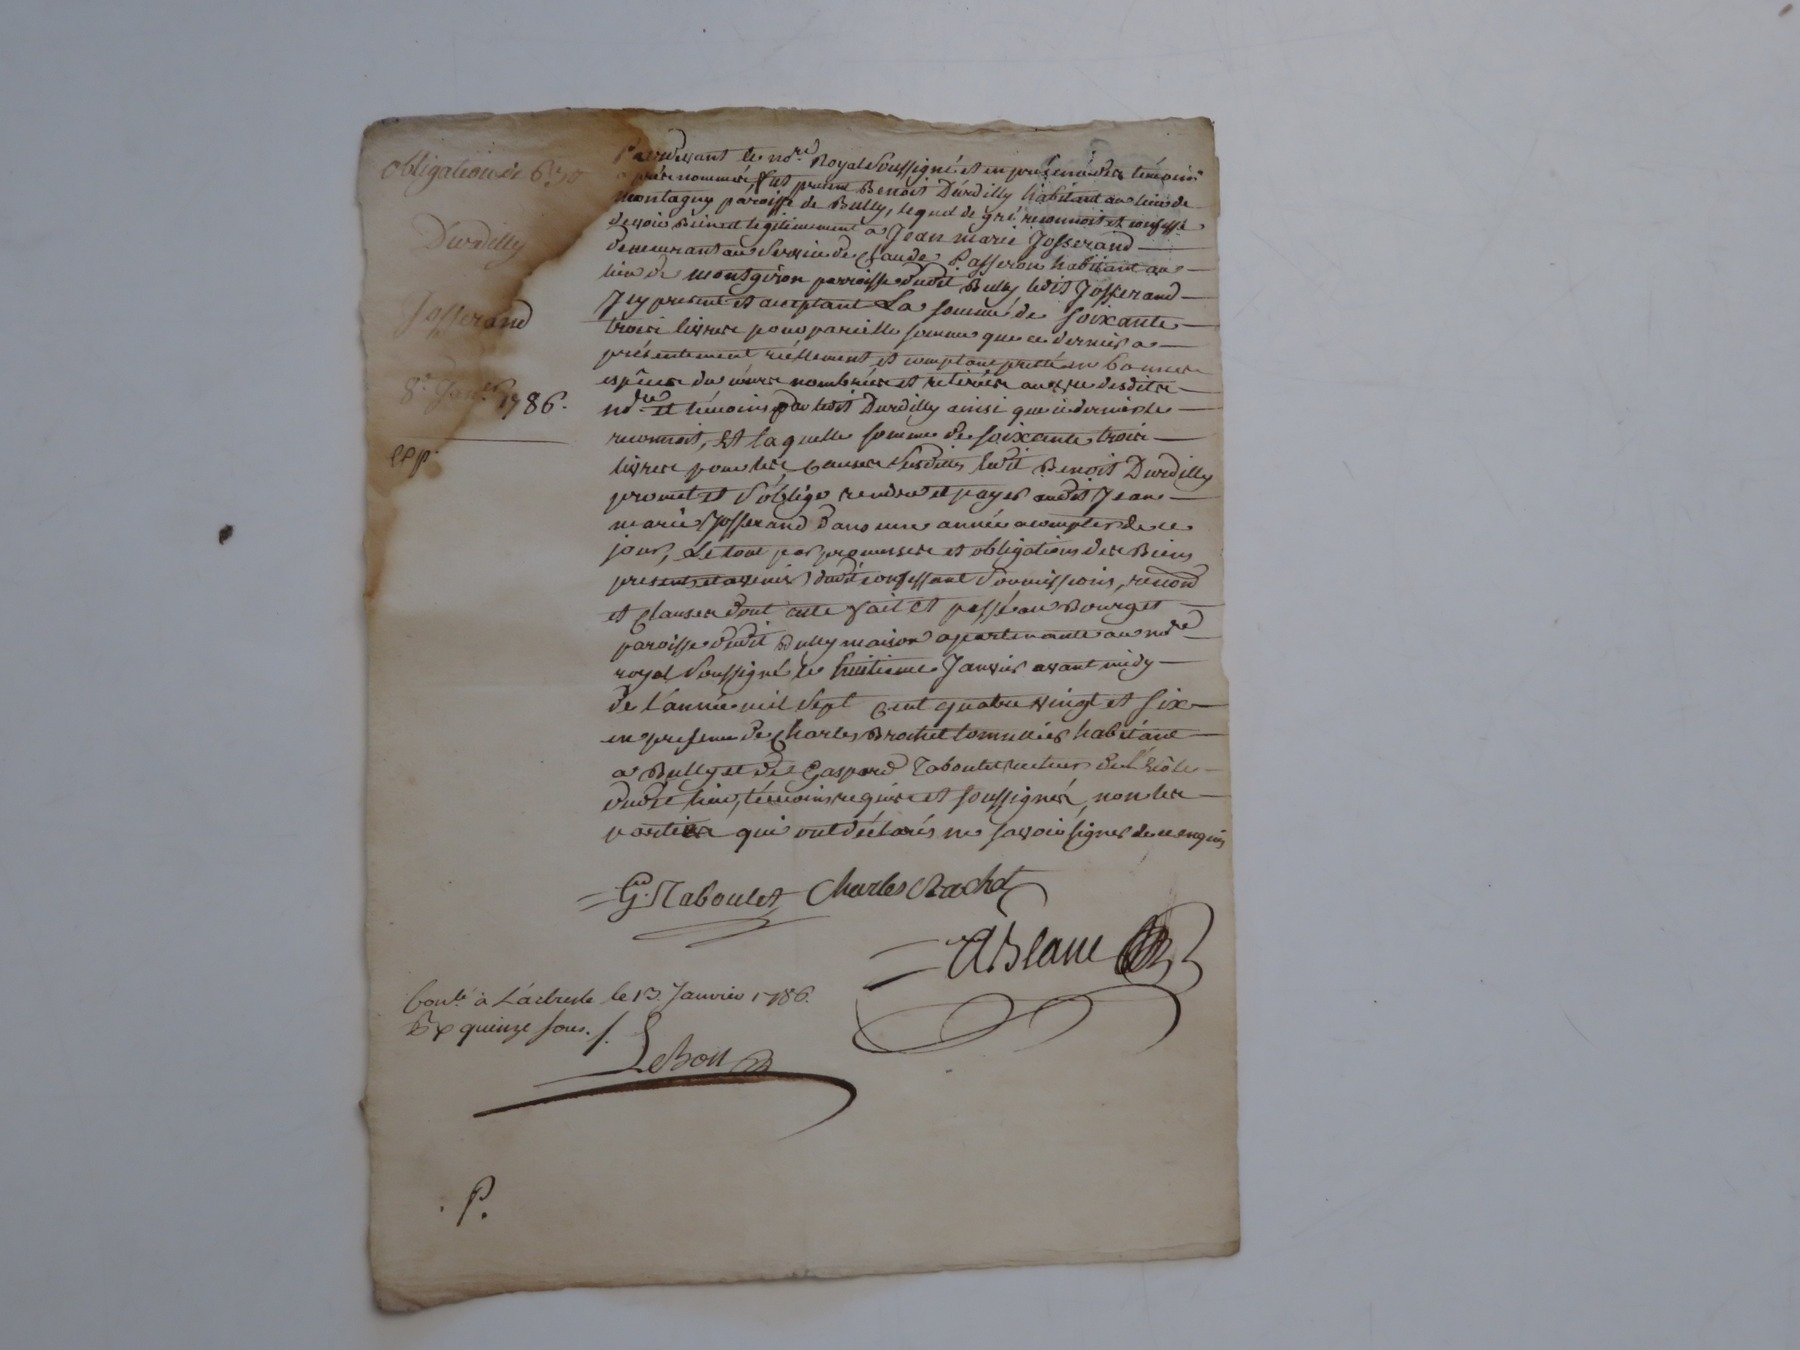 obligation de 63#
Durdilly
Josserand
8e. Janv. 1786.
exp.
Pardevant le nore. Royal Soussigné et en présence des témoins
après nommés, fut present Benoit Durdilly habitant au lieu de
montagny paroisse de Bully, lequel de gré reconnoit et confesse
devoir bien et légitimement a Jean marie Josserand
demeurant au service de Claude Passeron habitant au
lieu de montgiron parroisse dudit Bully ledit Josserand
Icy present et acceptant La somme de soixante
trois livres pour pareille somme que ce dernier a
présentement réellement et comptant pretté en bonnes
espèces du cours nombrées et retirées au vu desdits
nore. et témoins par ledit Durdilly ainsi que ce dernier le
reconnoit, Et laquelle somme de soixante trois
livres pour les causes susdites ledit Benoit Durdilly
promet et s'oblige rendre et payer audit Jean
marie Josserand dans une année a compter de ce
jour, Le tout par promesses et obligations des Biens
presents et avenir dudit confessant soumissions, renond
et clauses dont acte fait et passé au Bourg et
paroisse dudit Bully maison apartenante au nore.
royal soussigné le huitieme Janvier avant midy
de l'année mil sept cent quatre vingt et six
en presence de Charles Brochet tonnelier habitant
a Bully et de Gaspard Taboulet recteur de l'école
dudit lieu, témoins requis et soussignés, non les
parties qui ont déclarés ne savoir signer de ce enquis
Gd. Taboulet Charles Brochet
ABlanc
Conlé. à L'arbresle le 13. Janvier 1786.
R quinze sous.
LeBon
P.